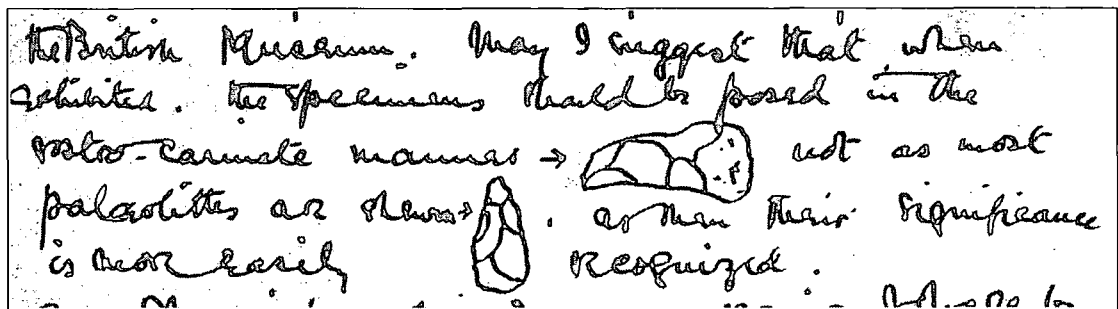 the British Museum. May I suggest that, when
exhibited. the specimens should be posed in the
rostro-carinate manner → not as most
palaeoliths are shewn → . as then their significance
is more easily recognized.